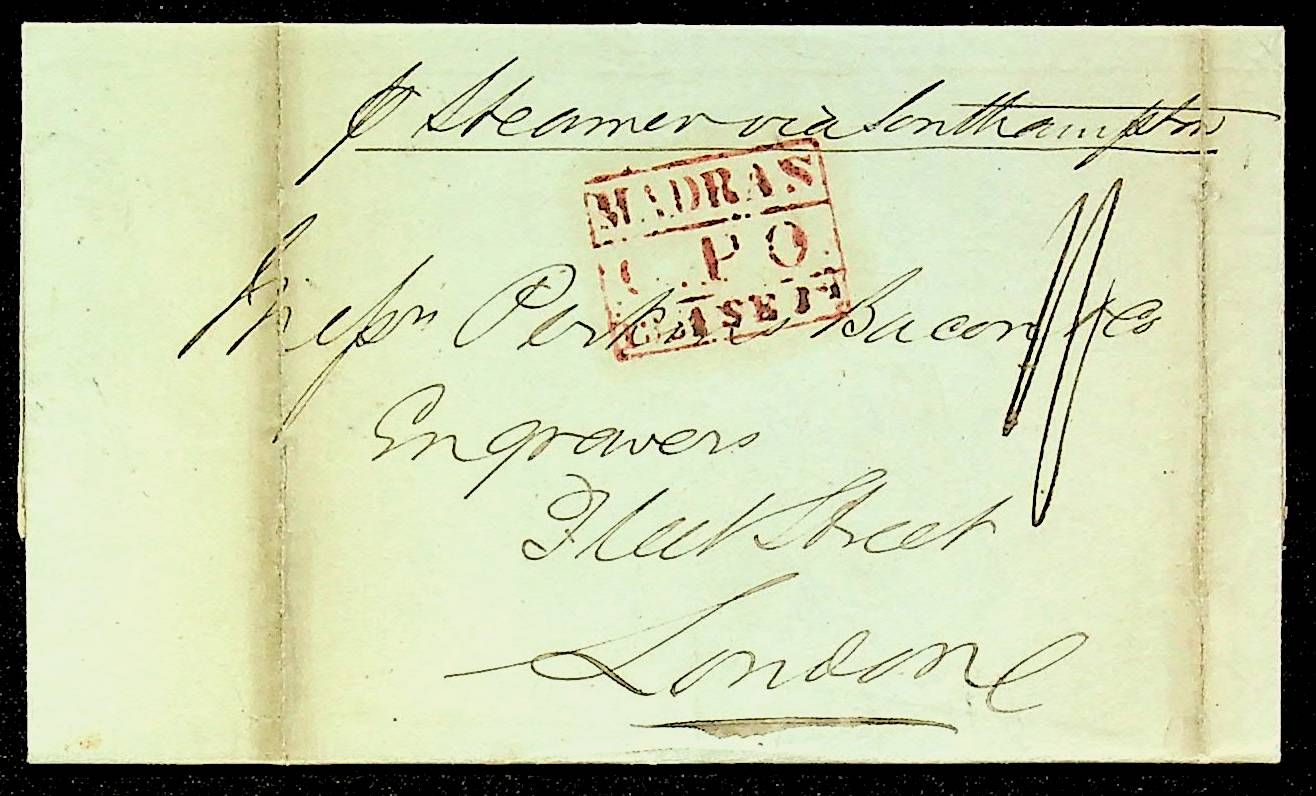 ⅌ Steamer via Southampton
MADRAS
G.P.O.
Messrs Perkins Bacon & Co
Engravers
Fleet Street
London